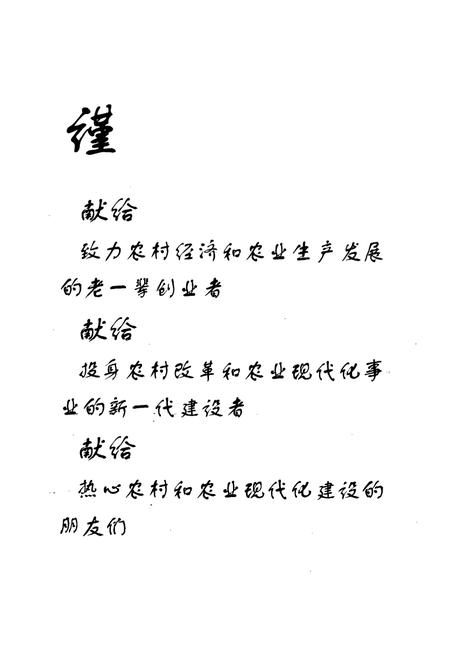 谨
献给
致力农村经济和农业生产发展
的老一辈创业者
献给
投身农村改革和农业现代化事
业的新一代建设者
献给
热心农村和农业现代化建设的
朋友们